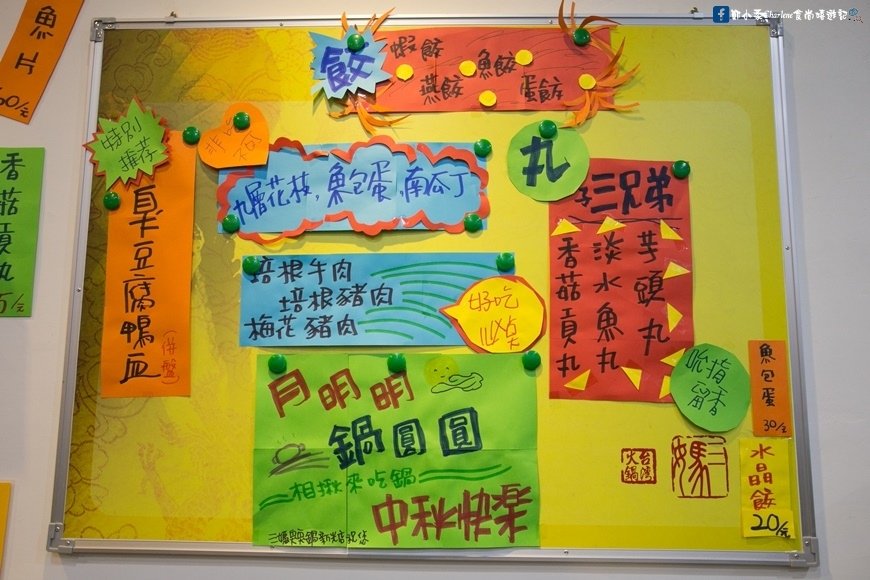 鄧小柔Charlene食尚嬉遊記
魚片
60/元
香菇貢丸
餃
蝦餃
魚餃
燕餃
蛋餃
特別
推荐
臭豆腐鴨血
(併盤)
九層花枝,魚包蛋,南瓜丁
培根牛肉
培根豬肉
梅花豬肉
好吃
丸
三兄弟
芋頭丸
淡水魚丸
香菇貢丸
吮指
留香
月明明
鍋圓圓
相揪來吃鍋
中秋快樂
三媽臭臭鍋新光店祝您
台灣
火鍋
三媽
魚包蛋
30/元
水晶餃
20/元